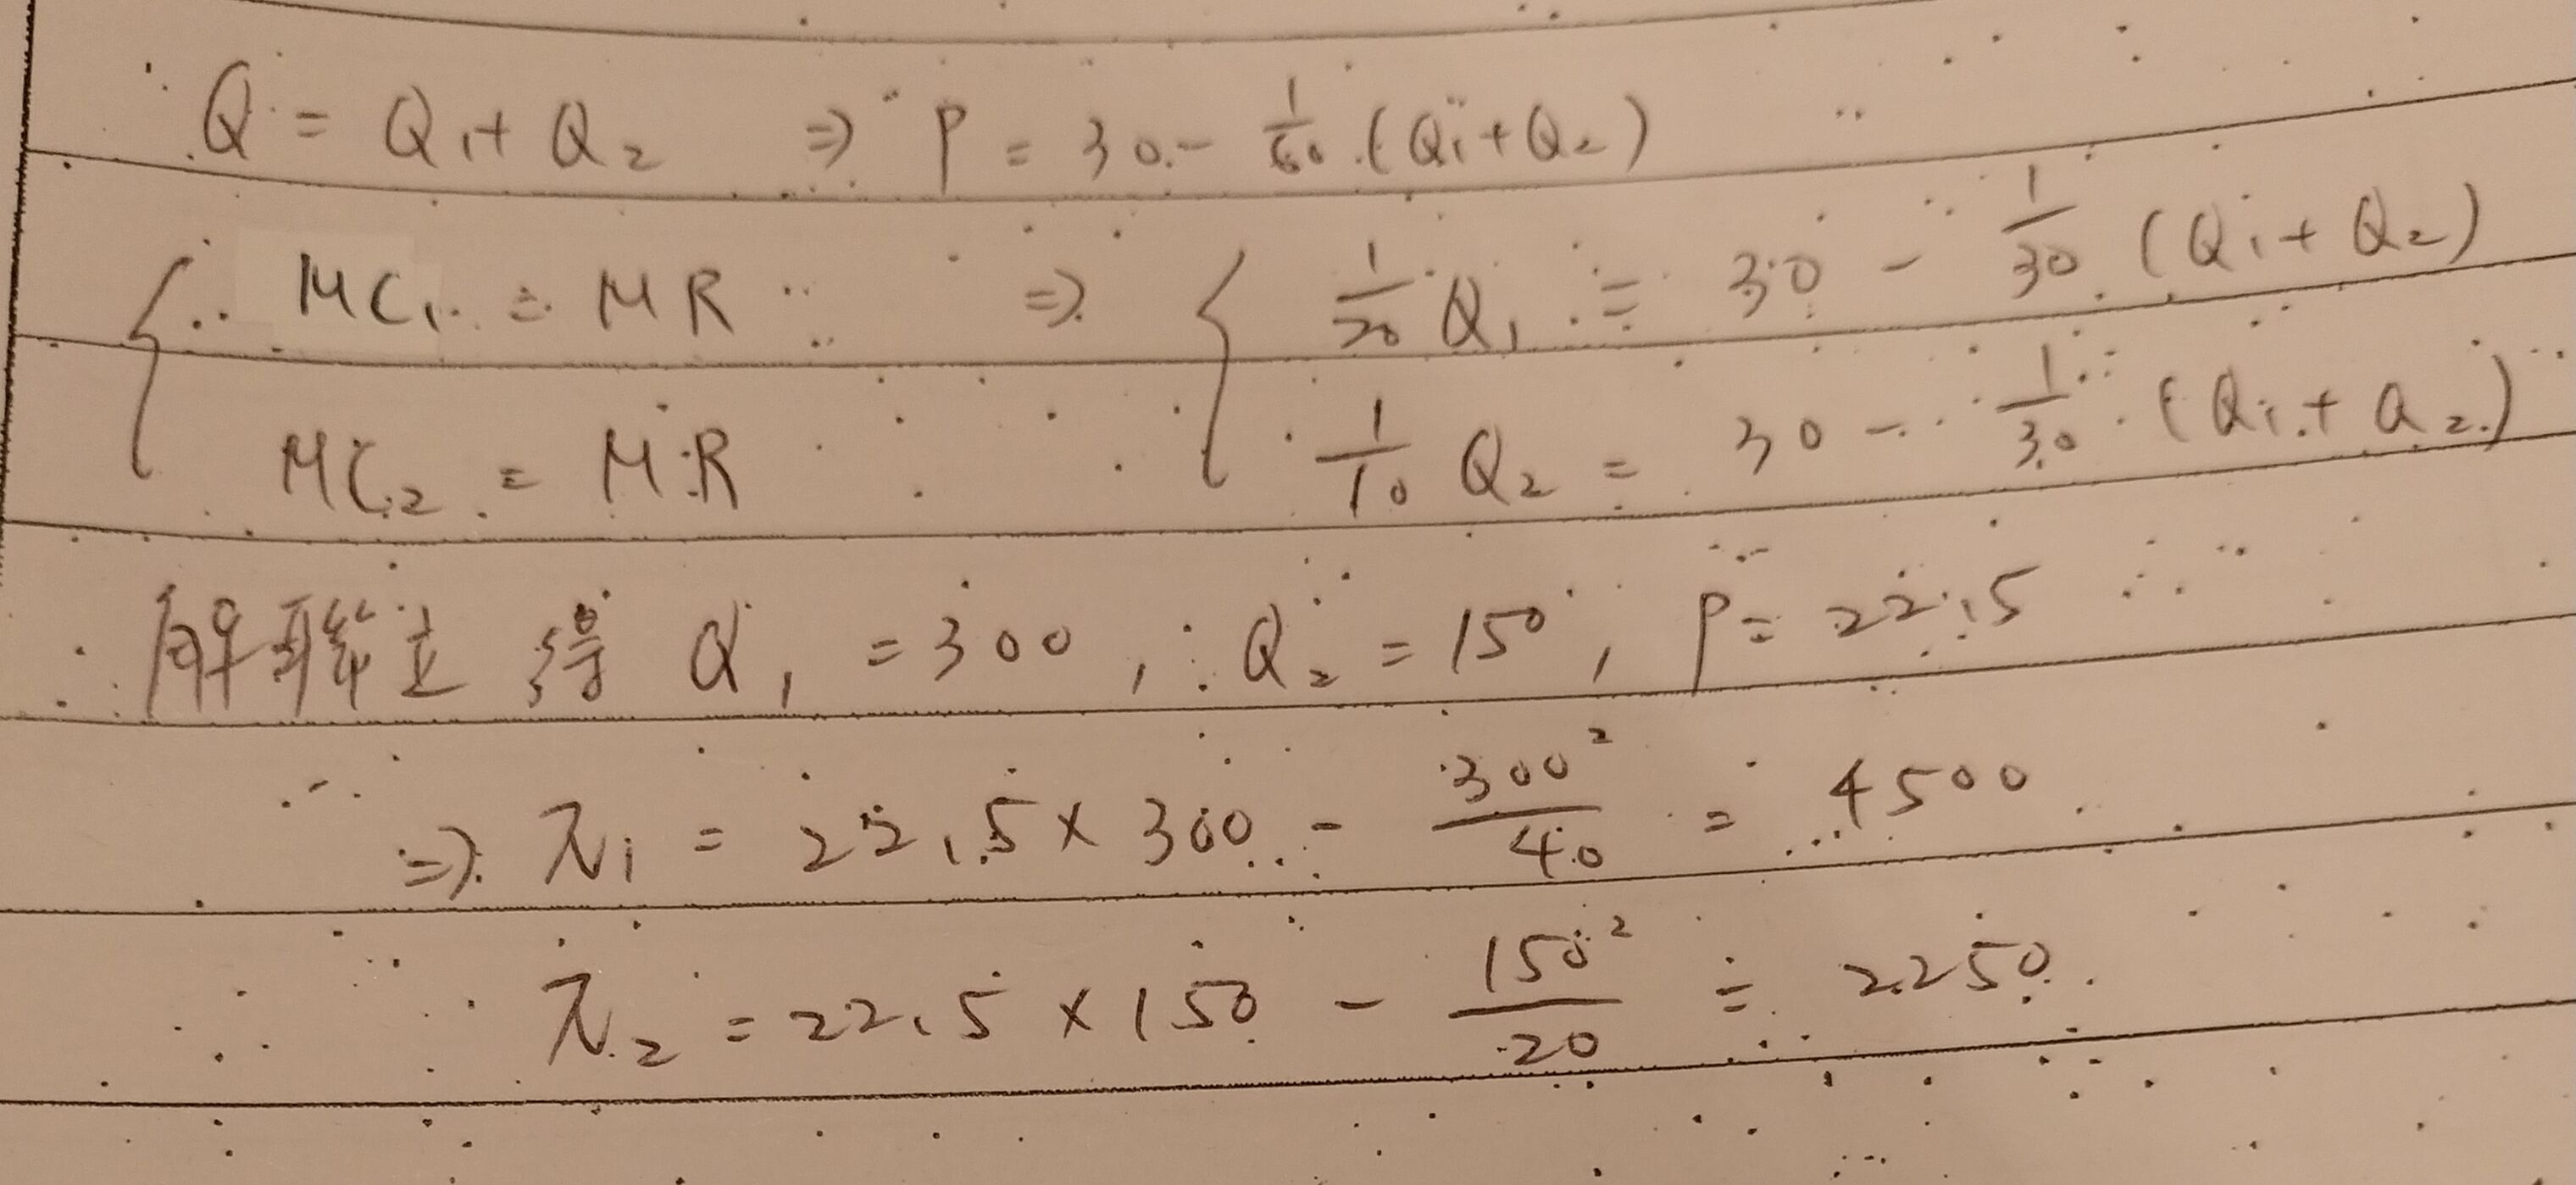 Q = Q₁ + Q₂ ⇒ P = 30 - 1/60 (Q₁ + Q₂)
{ MC₁ = MR ⇒ { 1/20 Q₁ = 30 - 1/30 (Q₁ + Q₂)
MC₂ = MR 1/10 Q₂ = 30 - 1/30 (Q₁ + Q₂)
解聯立得 Q₁ = 300, Q₂ = 150, P = 22.5
⇒ π₁ = 22.5 × 300 - 300²/40 = 4500
π₂ = 22.5 × 150 - 150²/20 = 2250